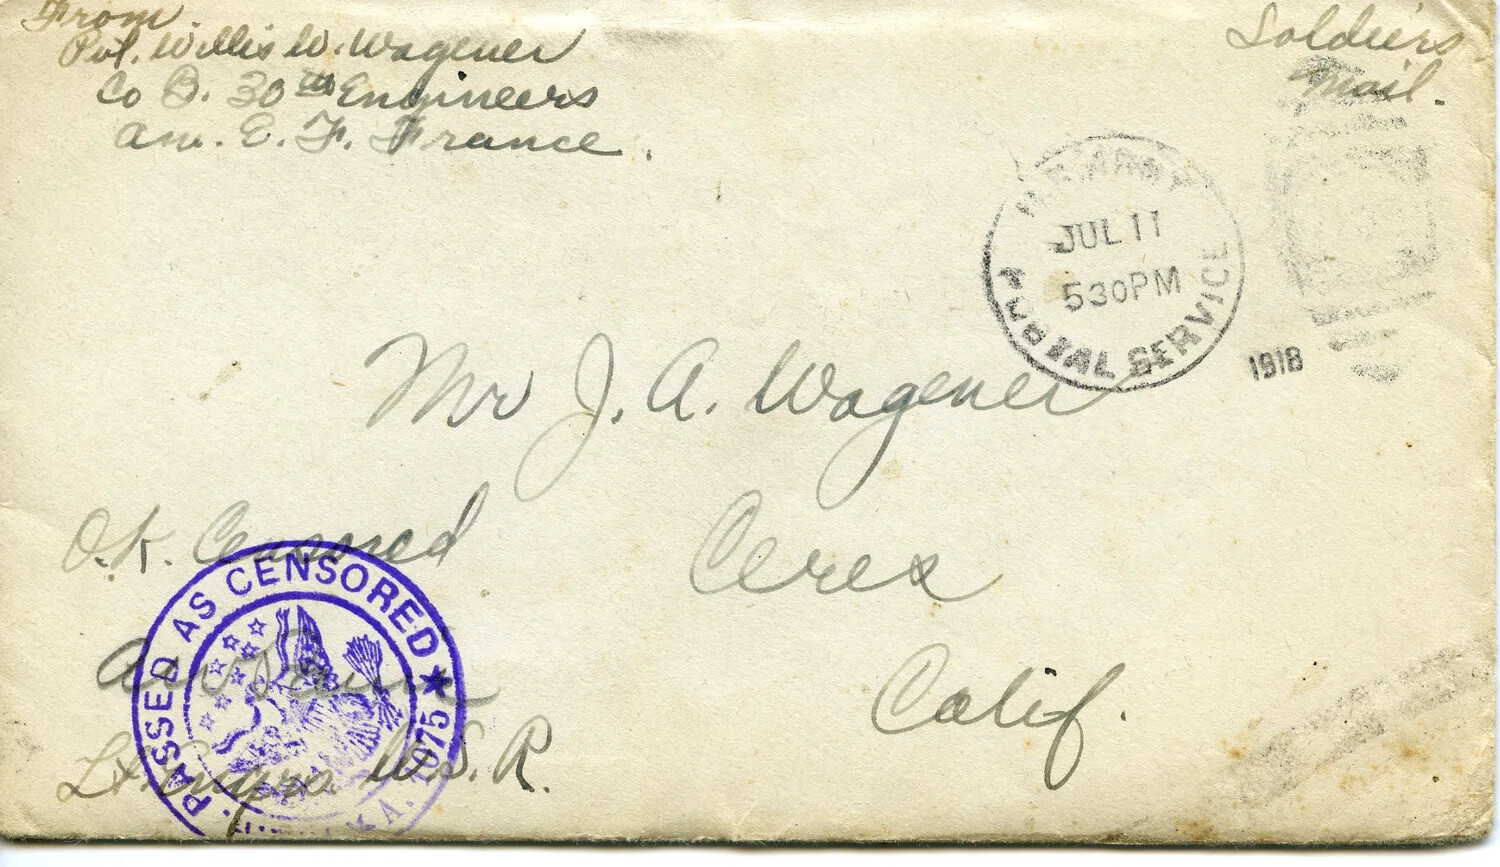 From
Pvt. Willis W. Wagener
Co B. 30th Engineers
Am. E. F. France.
Soldiers
Mail.
JUL 11
530PM
POSTAL SERVICE
1918
Mr J. A. Wagener
Ceres
Calif.
O.K. Censored
PASSED AS CENSORED
A. 1075
Lt. Engrs. U.S.R.